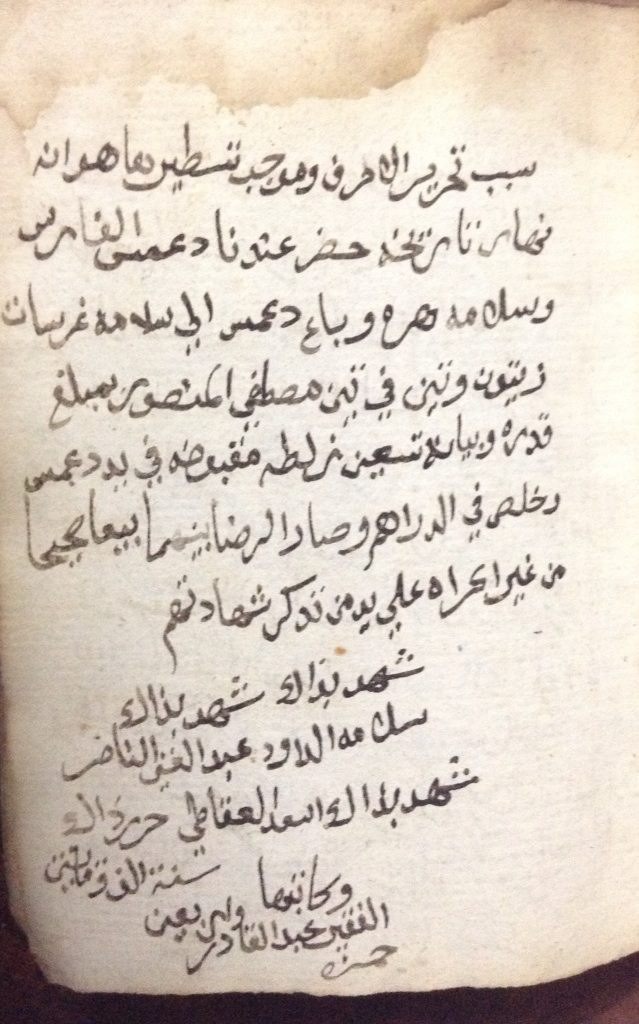 سبب تحرير الاحرف وموجب تسطيرها هو انه
نهار تاريخه حضر عندنا دعمس الفارس
وسلامه مره وباع دعمس الي سلامه غرسات
زيتون وتين في تين مصطفي المنصور بمبلغ
قدره وبيانه تسعين زلطه مقبوضه في يد دعمس
وخلص في الدراهم وصار الرضا بينهما بيعا صحيحا
من غير اكراه علي يد من تذكر شهادتهم
شهد بذالك شهد بذالك
سلامه الداود عبد الغني الناصر
شهد بذالك اسعد حرر ذالك
سنة الف ومايتين
وكاتبها واربعين
الفقير عبد القادر
حمزه